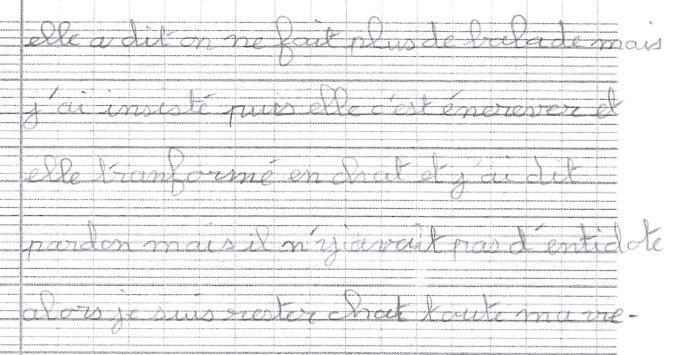 elle a dit on ne fait plus de balade mais
j'ai insisté puis elle c'est énerever et
elle tranformé en chat et j'ai dit
pardon mais il n'y avait pas d'entidote
alors je suis rester chat toute ma vie.